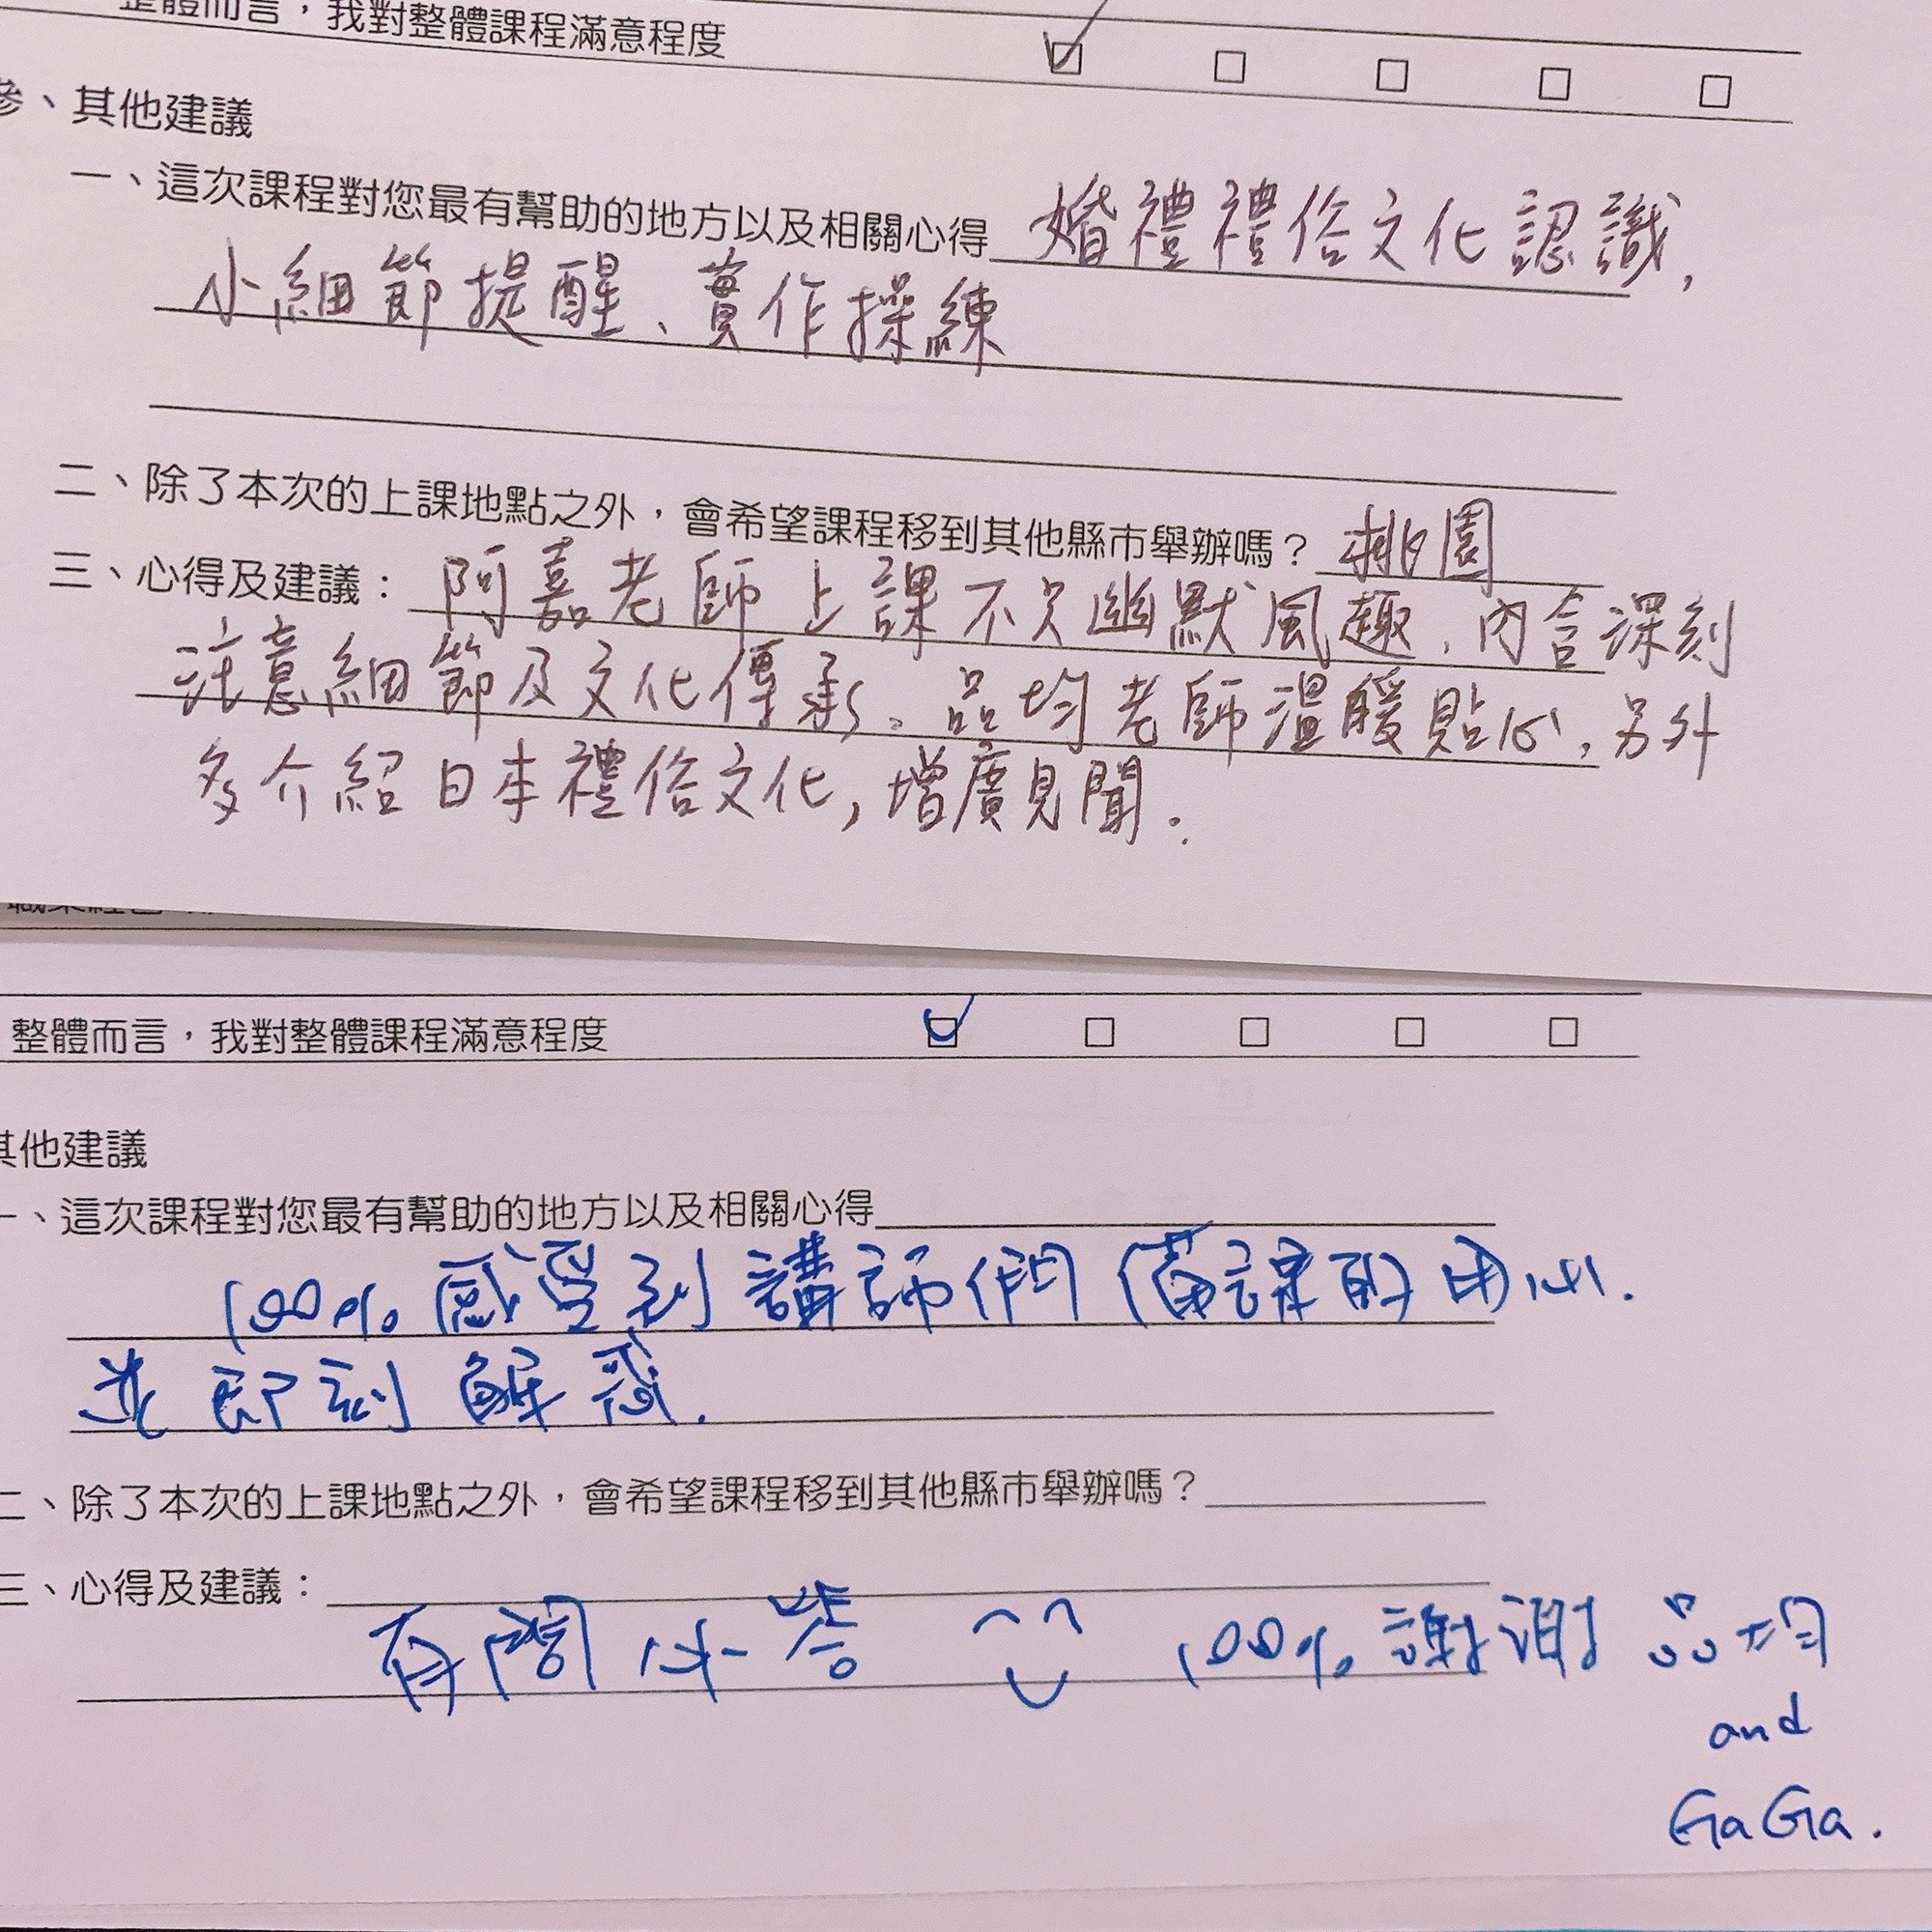 整體而言，我對整體課程滿意程度 □ □ □ □ □
參、其他建議
一、這次課程對您最有幫助的地方以及相關心得 婚禮禮俗文化認識,
小細節提醒、實作操練
二、除了本次的上課地點之外，會希望課程移到其他縣市舉辦嗎？ 桃園
三、心得及建議： 阿嘉老師上課不失幽默風趣, 內含深刻
注意細節及文化傳承。品均老師溫暖貼心, 另外
多介紹日本禮俗文化, 增廣見聞.
整體而言，我對整體課程滿意程度 □ □ □ □ □
其他建議
一、這次課程對您最有幫助的地方以及相關心得
100% 感受到講師們備課的用心.
並即刻解惑.
二、除了本次的上課地點之外，會希望課程移到其他縣市舉辦嗎？
三、心得及建議：
有問必答 100% 謝謝 品均
and
GaGa.